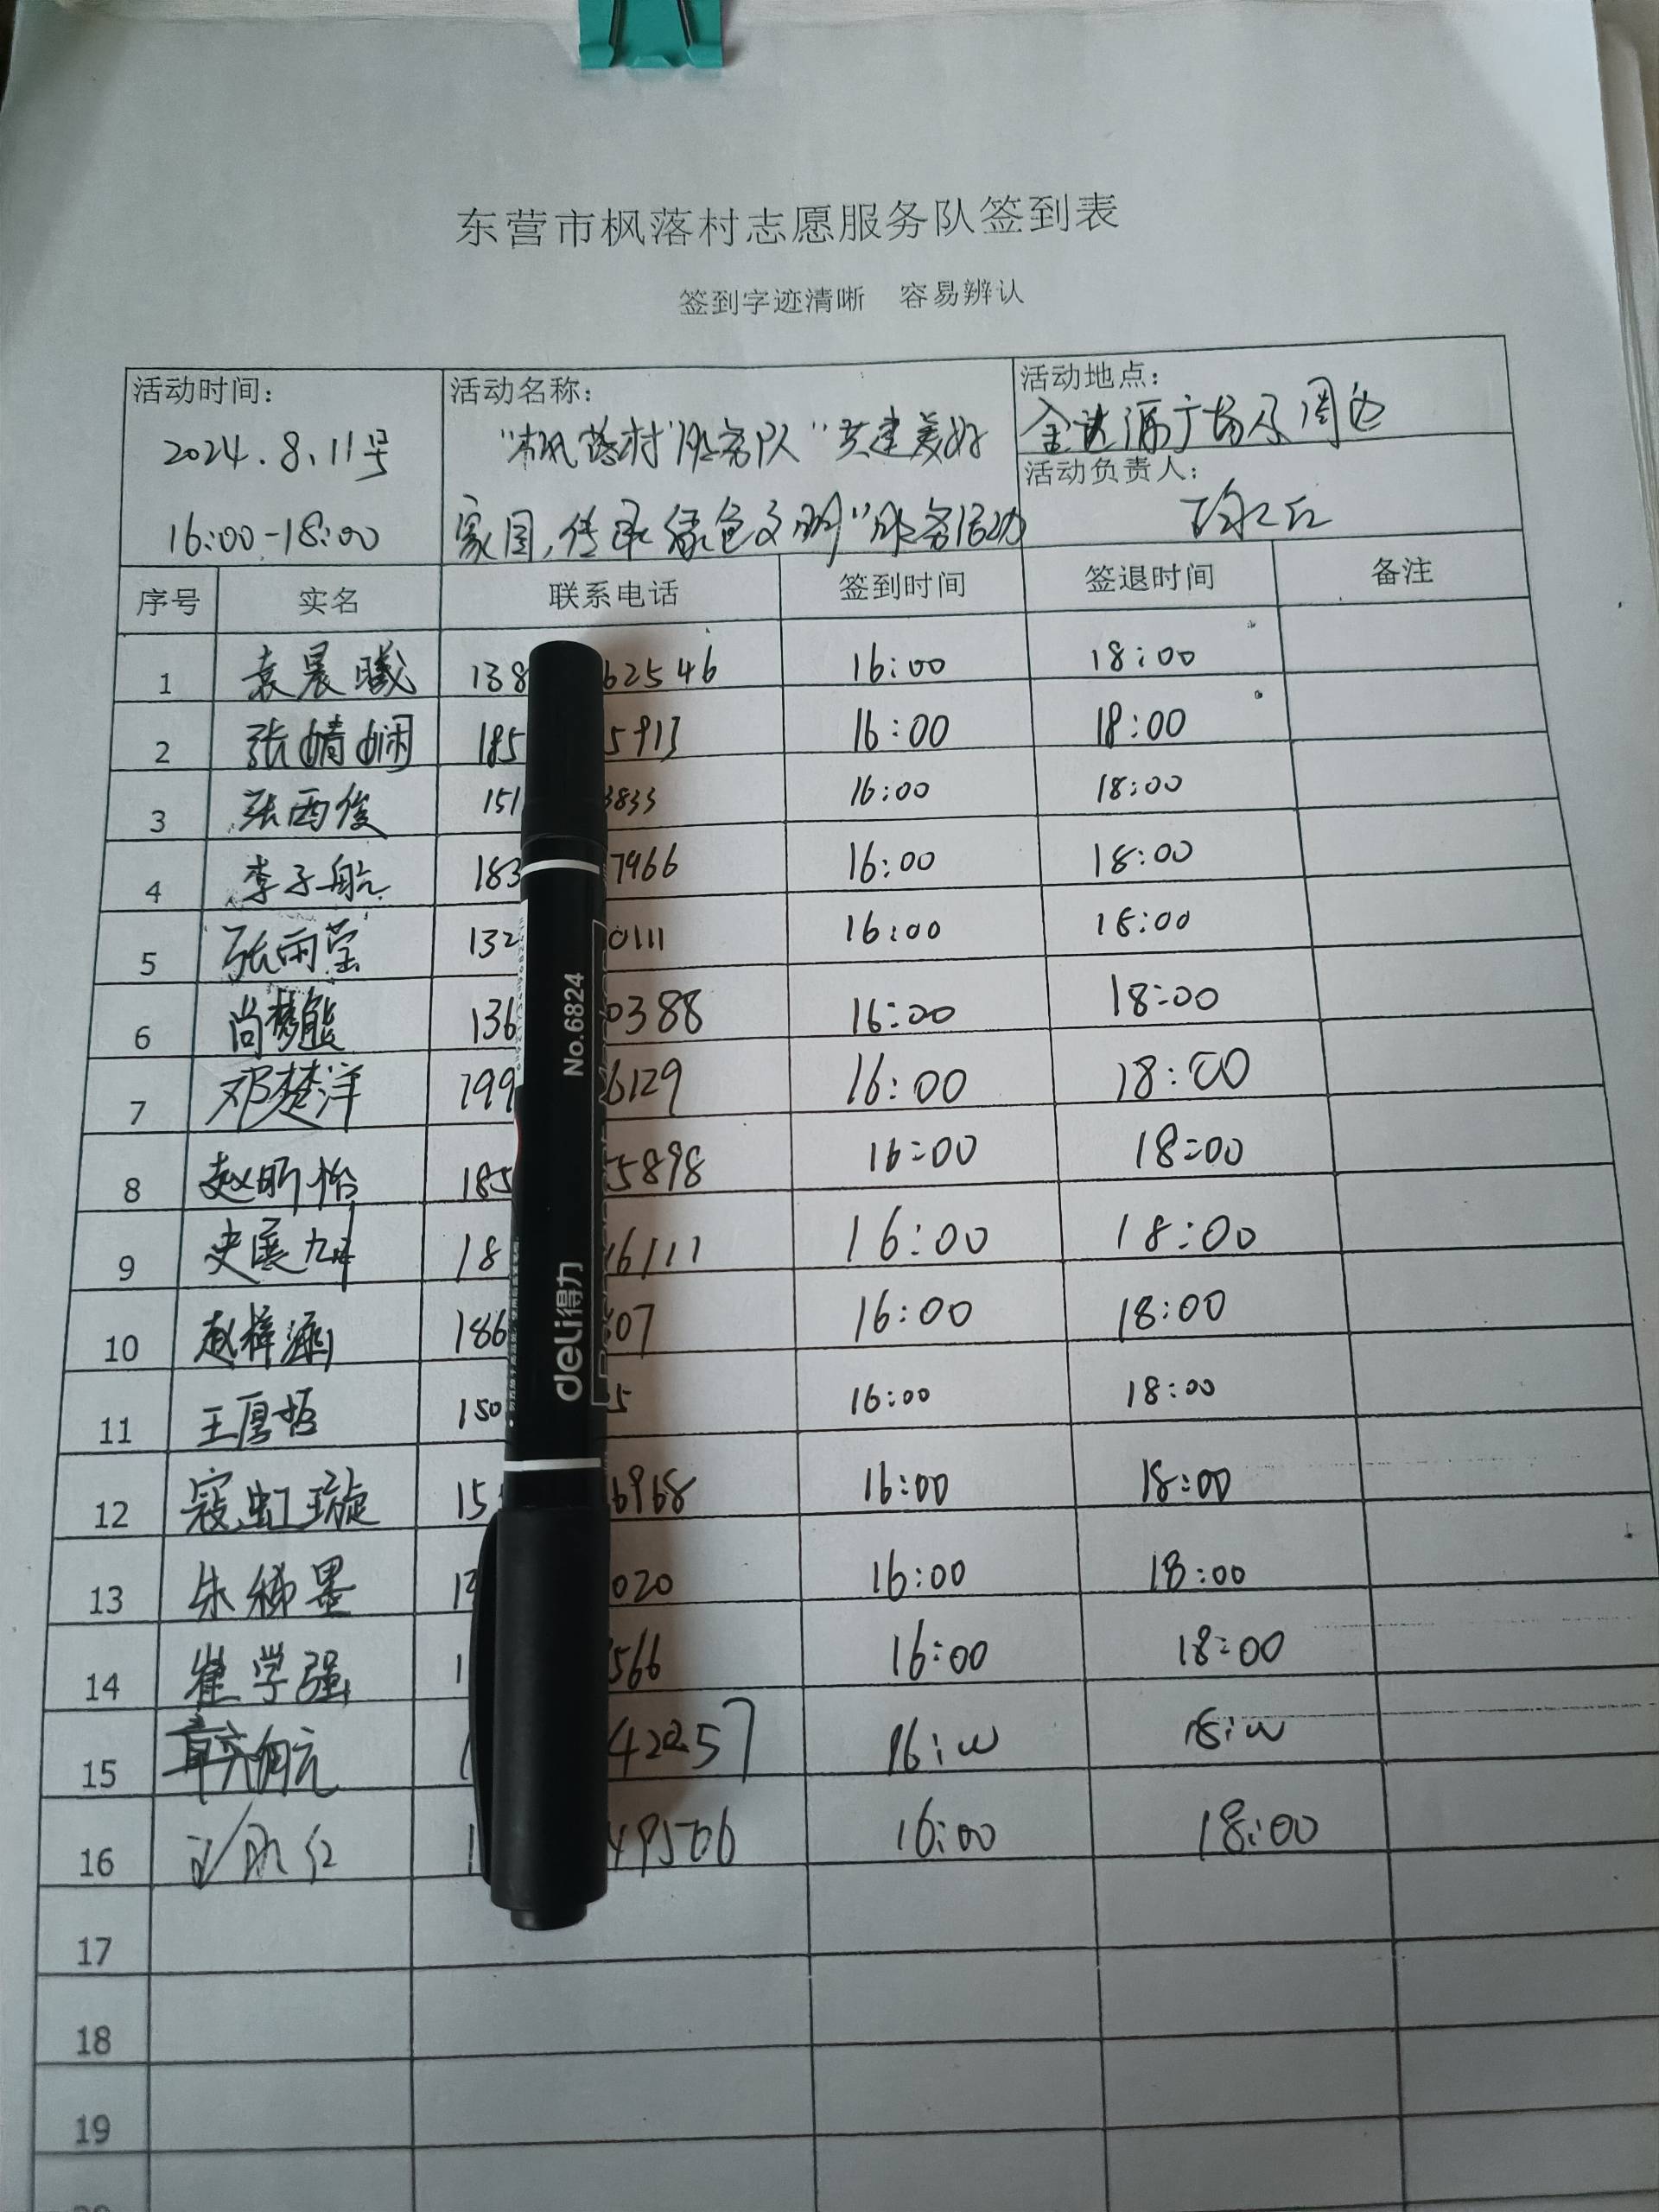 东营市枫落村志愿服务队签到表
签到字迹清晰 容易辨认
活动时间: 活动名称: 活动地点:
2024.8.11号 "枫落村"服务队"共建美好 广场及周边
16:00-18:00 家园,传承绿色文明"服务活动 活动负责人:
序号 实名 联系电话 签到时间 签退时间 备注
1 袁晨曦 138 62546 16:00 18:00
2 张婧娴 185 5913 16:00 18:00
3 张西俊 151 3833 16:00 18:00
4 李子航 183 7966 16:00 18:00
5 张雨莹 132 0111 16:00 18:00
6 尚梦熊 136 0388 16:00 18:00
7 邓楚洋 199 6129 16:00 18:00
8 赵昕怡 185 5898 16:00 18:00
9 史展 18 16111 16:00 18:00
10 赵梓涵 186 07 16:00 18:00
11 王厚哲 150 5 16:00 18:00
12 寇虹璇 15 6968 16:00 18:00
13 朱稀墨 020 16:00 18:00
14 崔学强 1 566 16:00 18:00
15 42257 16:00 18:00
16 49506 16:00 18:00
17
18
19
No.6824
deli得力